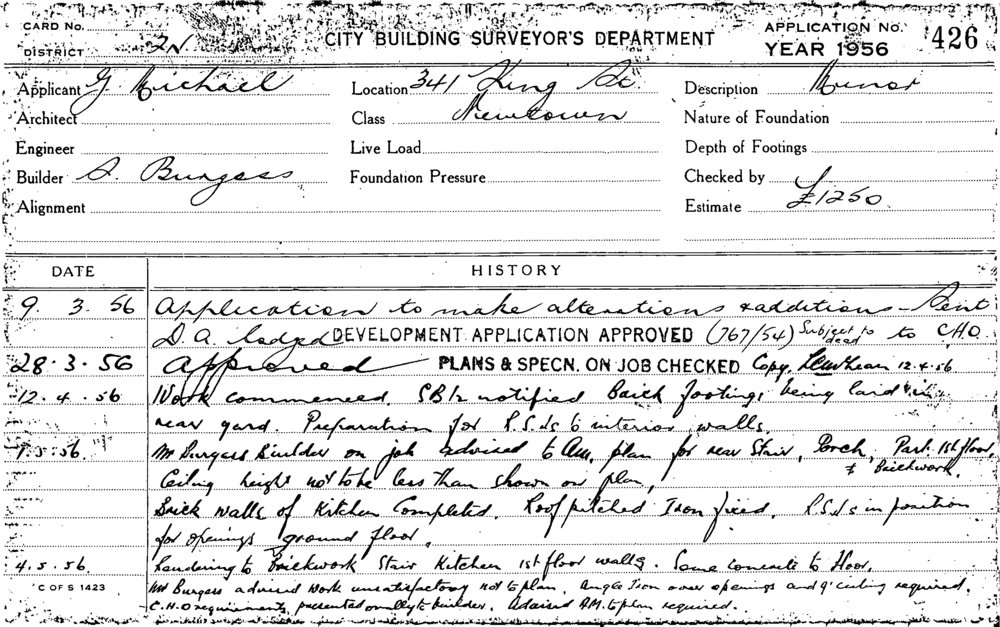 CARD No. APPLICATION No. 426
DISTRICT 2N CITY BUILDING SURVEYOR'S DEPARTMENT YEAR 1956
Applicant G. Michael Location 341 King St. Description Minor
Architect Class Newtown Nature of Foundation
Engineer Live Load Depth of Footings
Builder A. Burgess Foundation Pressure Checked by
Alignment Estimate £1250
DATE HISTORY
9. 3. 56 Application to make alterations & additions - Sent
D.A. lodged DEVELOPMENT APPLICATION APPROVED (767/54) Subject to to C.H.O.
28.3.56 Approved PLANS & SPECN. ON JOB CHECKED Copy. 12.4.56
12.4.56 Work commenced. SB/2 notified Brick footings being laid in
rear yard. Preparation for R.S.Js to interior walls.
Mr Burgess Builder on job advised to Am. plan for rear Stair, Porch, Part. 1st floor
& Brickwork.
Ceiling height not to be less than shown on plan,
Brick walls of Kitchen Completed. Roof pitched Iron fixed. R.S.Js in position
for openings ground floor.
4.5.56. Rendering to Brickwork Stair Kitchen 1st floor walls. Some concrete to floor.
C OF S 1423 Mr Burgess advised work unsatisfactory not to plan. Angle Iron over openings and 9' ceiling required.
C.H.O requirements presented to builder. Advised AM. to plan required.